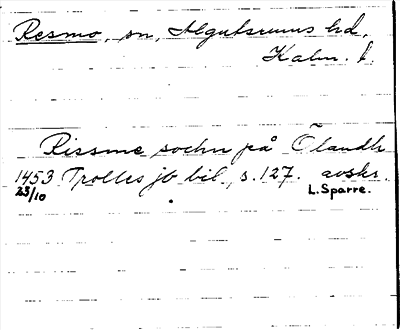 Resmo, sn, Algutsrums hd,
Kalm. l.
Rissme sochn på Ölandh
1453 Trolles jb bil, s. 127. avskr.
23/10 L. Sparre.